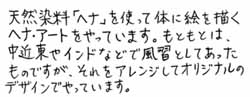 天然染料「ヘナ」を使って体に絵を描く
ヘナ・アートをやっています。もともとは、
中近東やインドなどで風習としてあった
ものですが、それをアレンジしてオリジナルの
デザインでやっています。